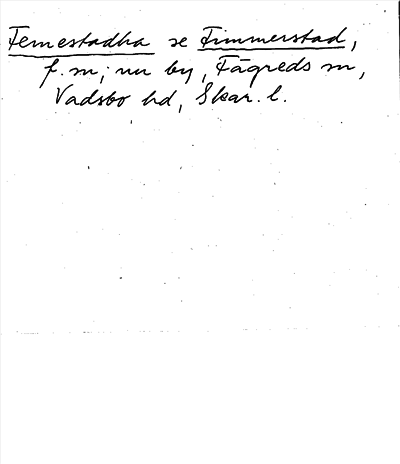 Femestadha se Fimmerstad,
f. m; nu by, Fägreds sn,
Vadsbo hd, Skar. l.